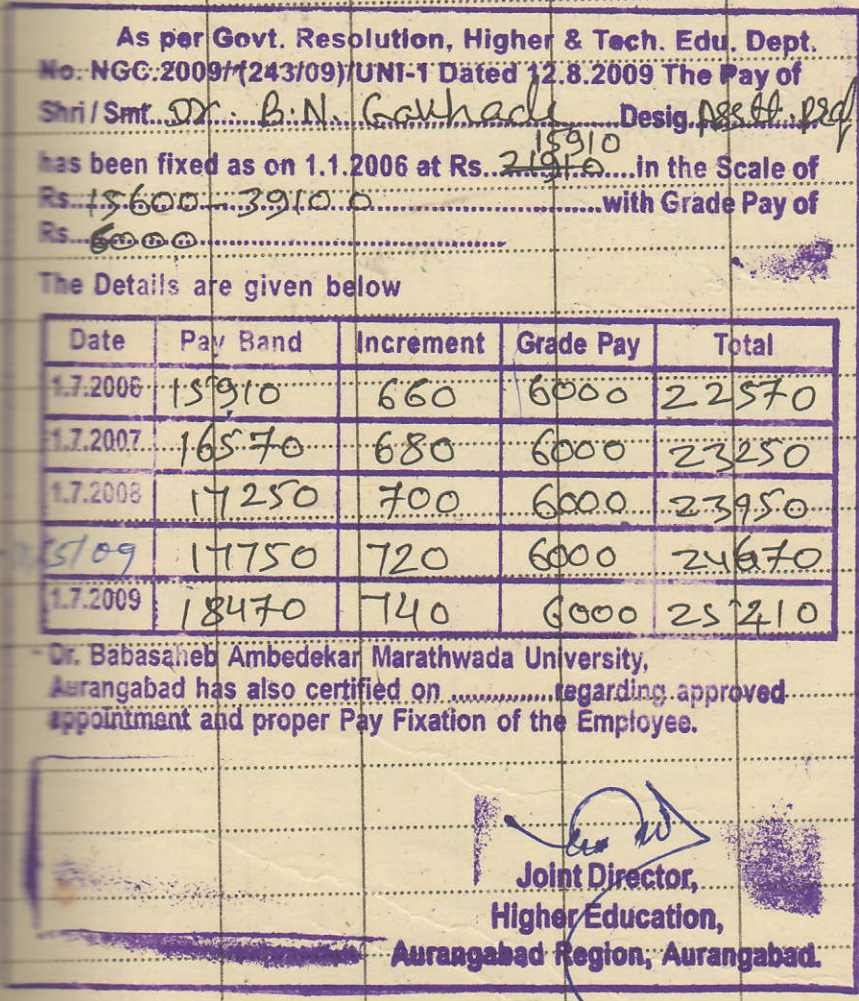 As per Govt. Resolution, Higher & Tech. Edu. Dept.
No. NGC.2009/(243/09)/UNI-1 Dated 12.8.2009 The Pay of
Shri / Smt. Dr. B.N. Gavhade Desig. Asstt. prof
15910
has been fixed as on 1.1.2006 at Rs. 21910 in the Scale of
Rs. 15600 - 39100 with Grade Pay of
Rs. 6000
The Details are given below
Date Pay Band Increment Grade Pay Total
1.7.2006 15910 660 6000 22570
1.7.2007 16570 680 6000 23250
1.7.2008 17250 700 6000 23950
5/09 17750 720 6000 24670
1.7.2009 18470 740 6000 25210
Dr. Babasaheb Ambedekar Marathwada University,
Aurangabad has also certified on ............... regarding approved
appointment and proper Pay Fixation of the Employee.
Joint Director,
Higher Education,
Aurangabad Region, Aurangabad.